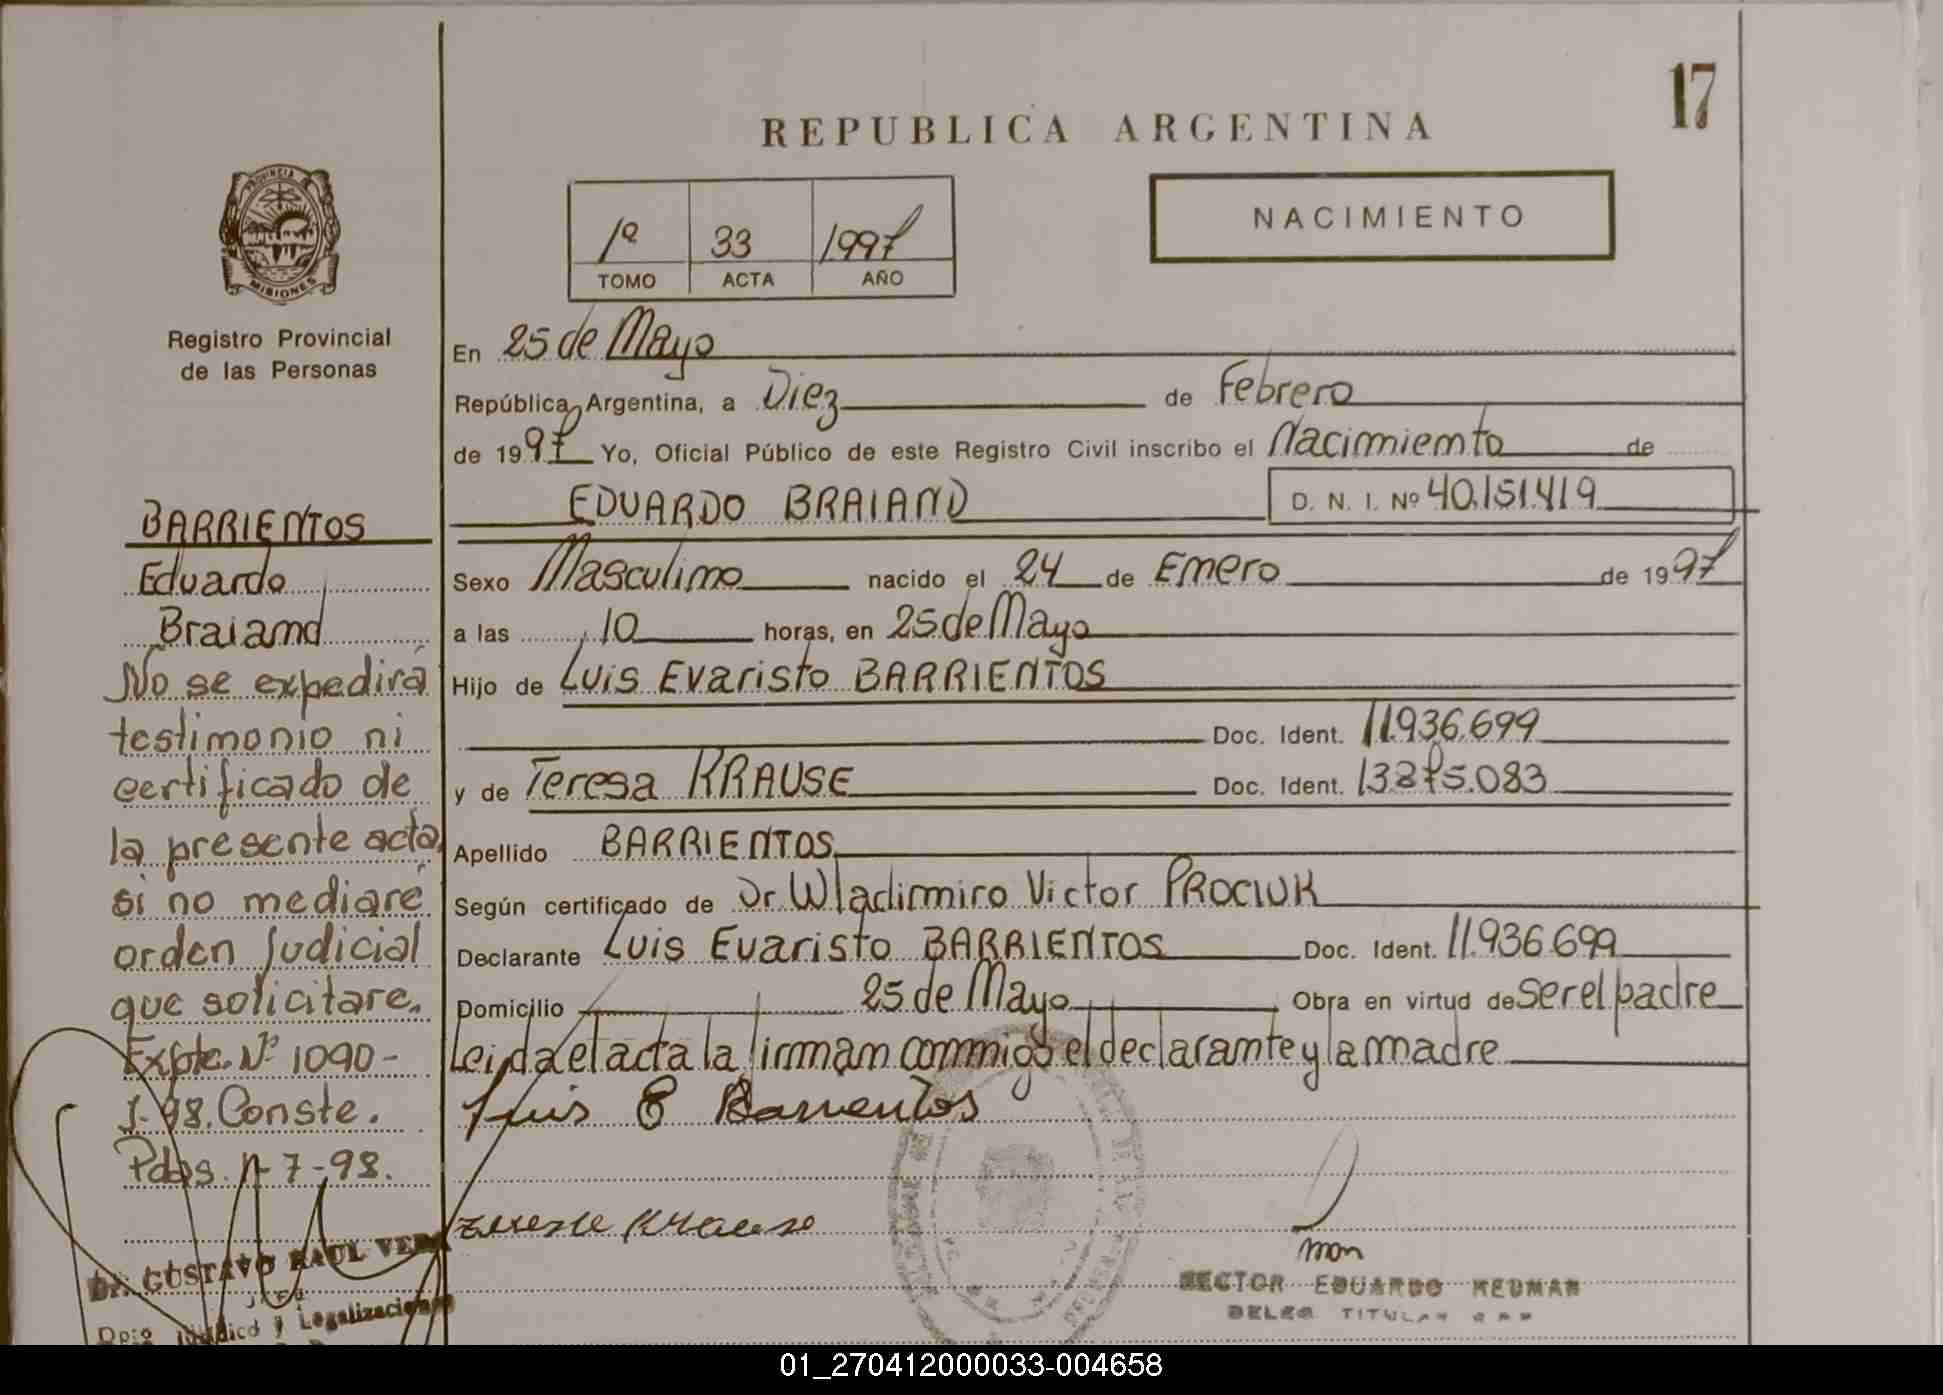 17
REPUBLICA ARGENTINA
PROVINCIA DE
MISIONES
1º 33 1997
TOMO ACTA AÑO
NACIMIENTO
Registro Provincial
de las Personas
BARRIENTOS
Eduardo
Braiand
No se expedirá
testimonio ni
certificado de
la presente acta
si no mediare
orden judicial
que solicitare.
Expte. Nº 1090-
98. Conste.
Pdas. 7-98.
Dr. GUSTAVO RAUL VERA
Legalizaciones
En 25 de Mayo
República Argentina, a Diez de Febrero
de 1997 Yo, Oficial Público de este Registro Civil inscribo el Nacimiento de
EDUARDO BRAIAND D. N. I. Nº 40.151.419
Sexo Masculino nacido el 24 de Enero de 1997
a las 10 horas, en 25 de Mayo
Hijo de Luis Evaristo BARRIENTOS
Doc. Ident. 11.936.699
y de Teresa KRAUSE Doc. Ident. 13.875.083
Apellido BARRIENTOS
Según certificado de Dr. Wladimiro Victor PROCIUK
Declarante Luis Evaristo BARRIENTOS Doc. Ident. 11.936.699
Domicilio 25 de Mayo Obra en virtud de ser el padre
Leida el acta la firman conmigo el declarante y la madre
Luis E Barrientos
Krause
HECTOR EDUARDO
TITULAR
01_270412000033-004658